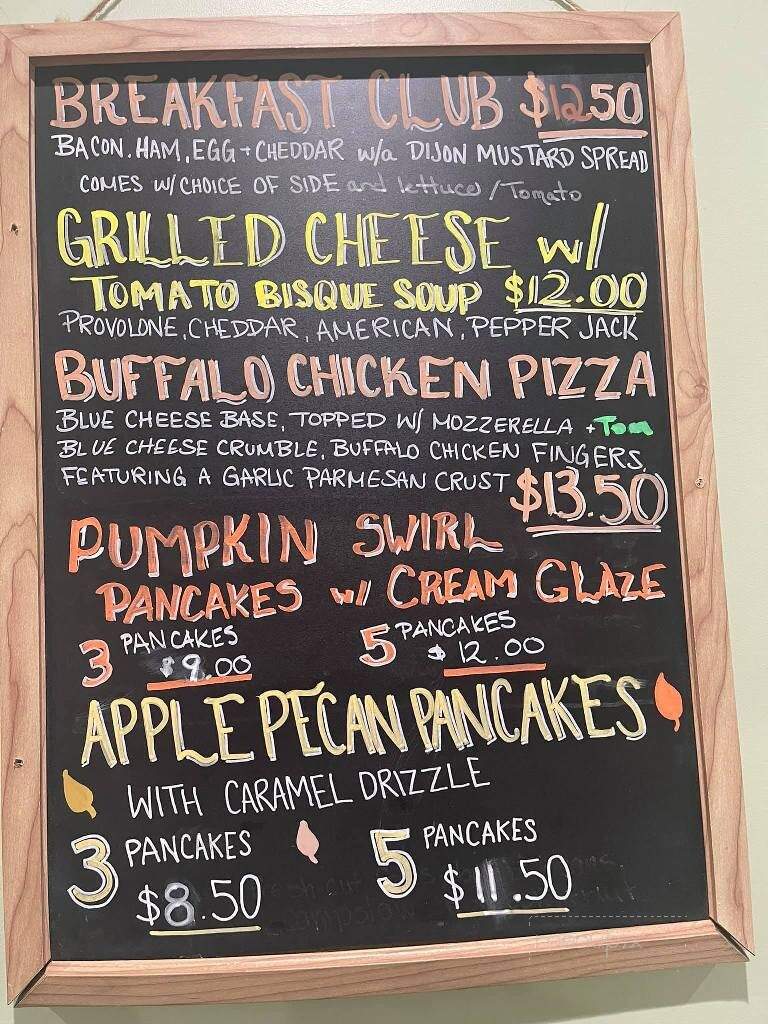 BREAKFAST CLUB $12.50
BACON, HAM, EGG + CHEDDAR w/a DIJON MUSTARD SPREAD
COMES W/ CHOICE OF SIDE and lettuce / Tomato
GRILLED CHEESE w/
TOMATO BISQUE SOUP $12.00
PROVOLONE, CHEDDAR, AMERICAN, PEPPER JACK
BUFFALO CHICKEN PIZZA
BLUE CHEESE BASE, TOPPED W/ MOZZERELLA + Tom
BLUE CHEESE CRUMBLE, BUFFALO CHICKEN FINGERS,
FEATURING A GARLIC PARMESAN CRUST $13.50
PUMPKIN SWIRL
PANCAKES w/ CREAM GLAZE
3 PANCAKES 5 PANCAKES
$9.00 $12.00
APPLE PECAN PANCAKES
WITH CARAMEL DRIZZLE
3 PANCAKES 5 PANCAKES
$8.50 $11.50